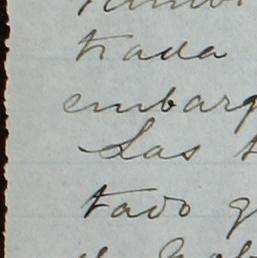 trada
embarg
Las t
tado g